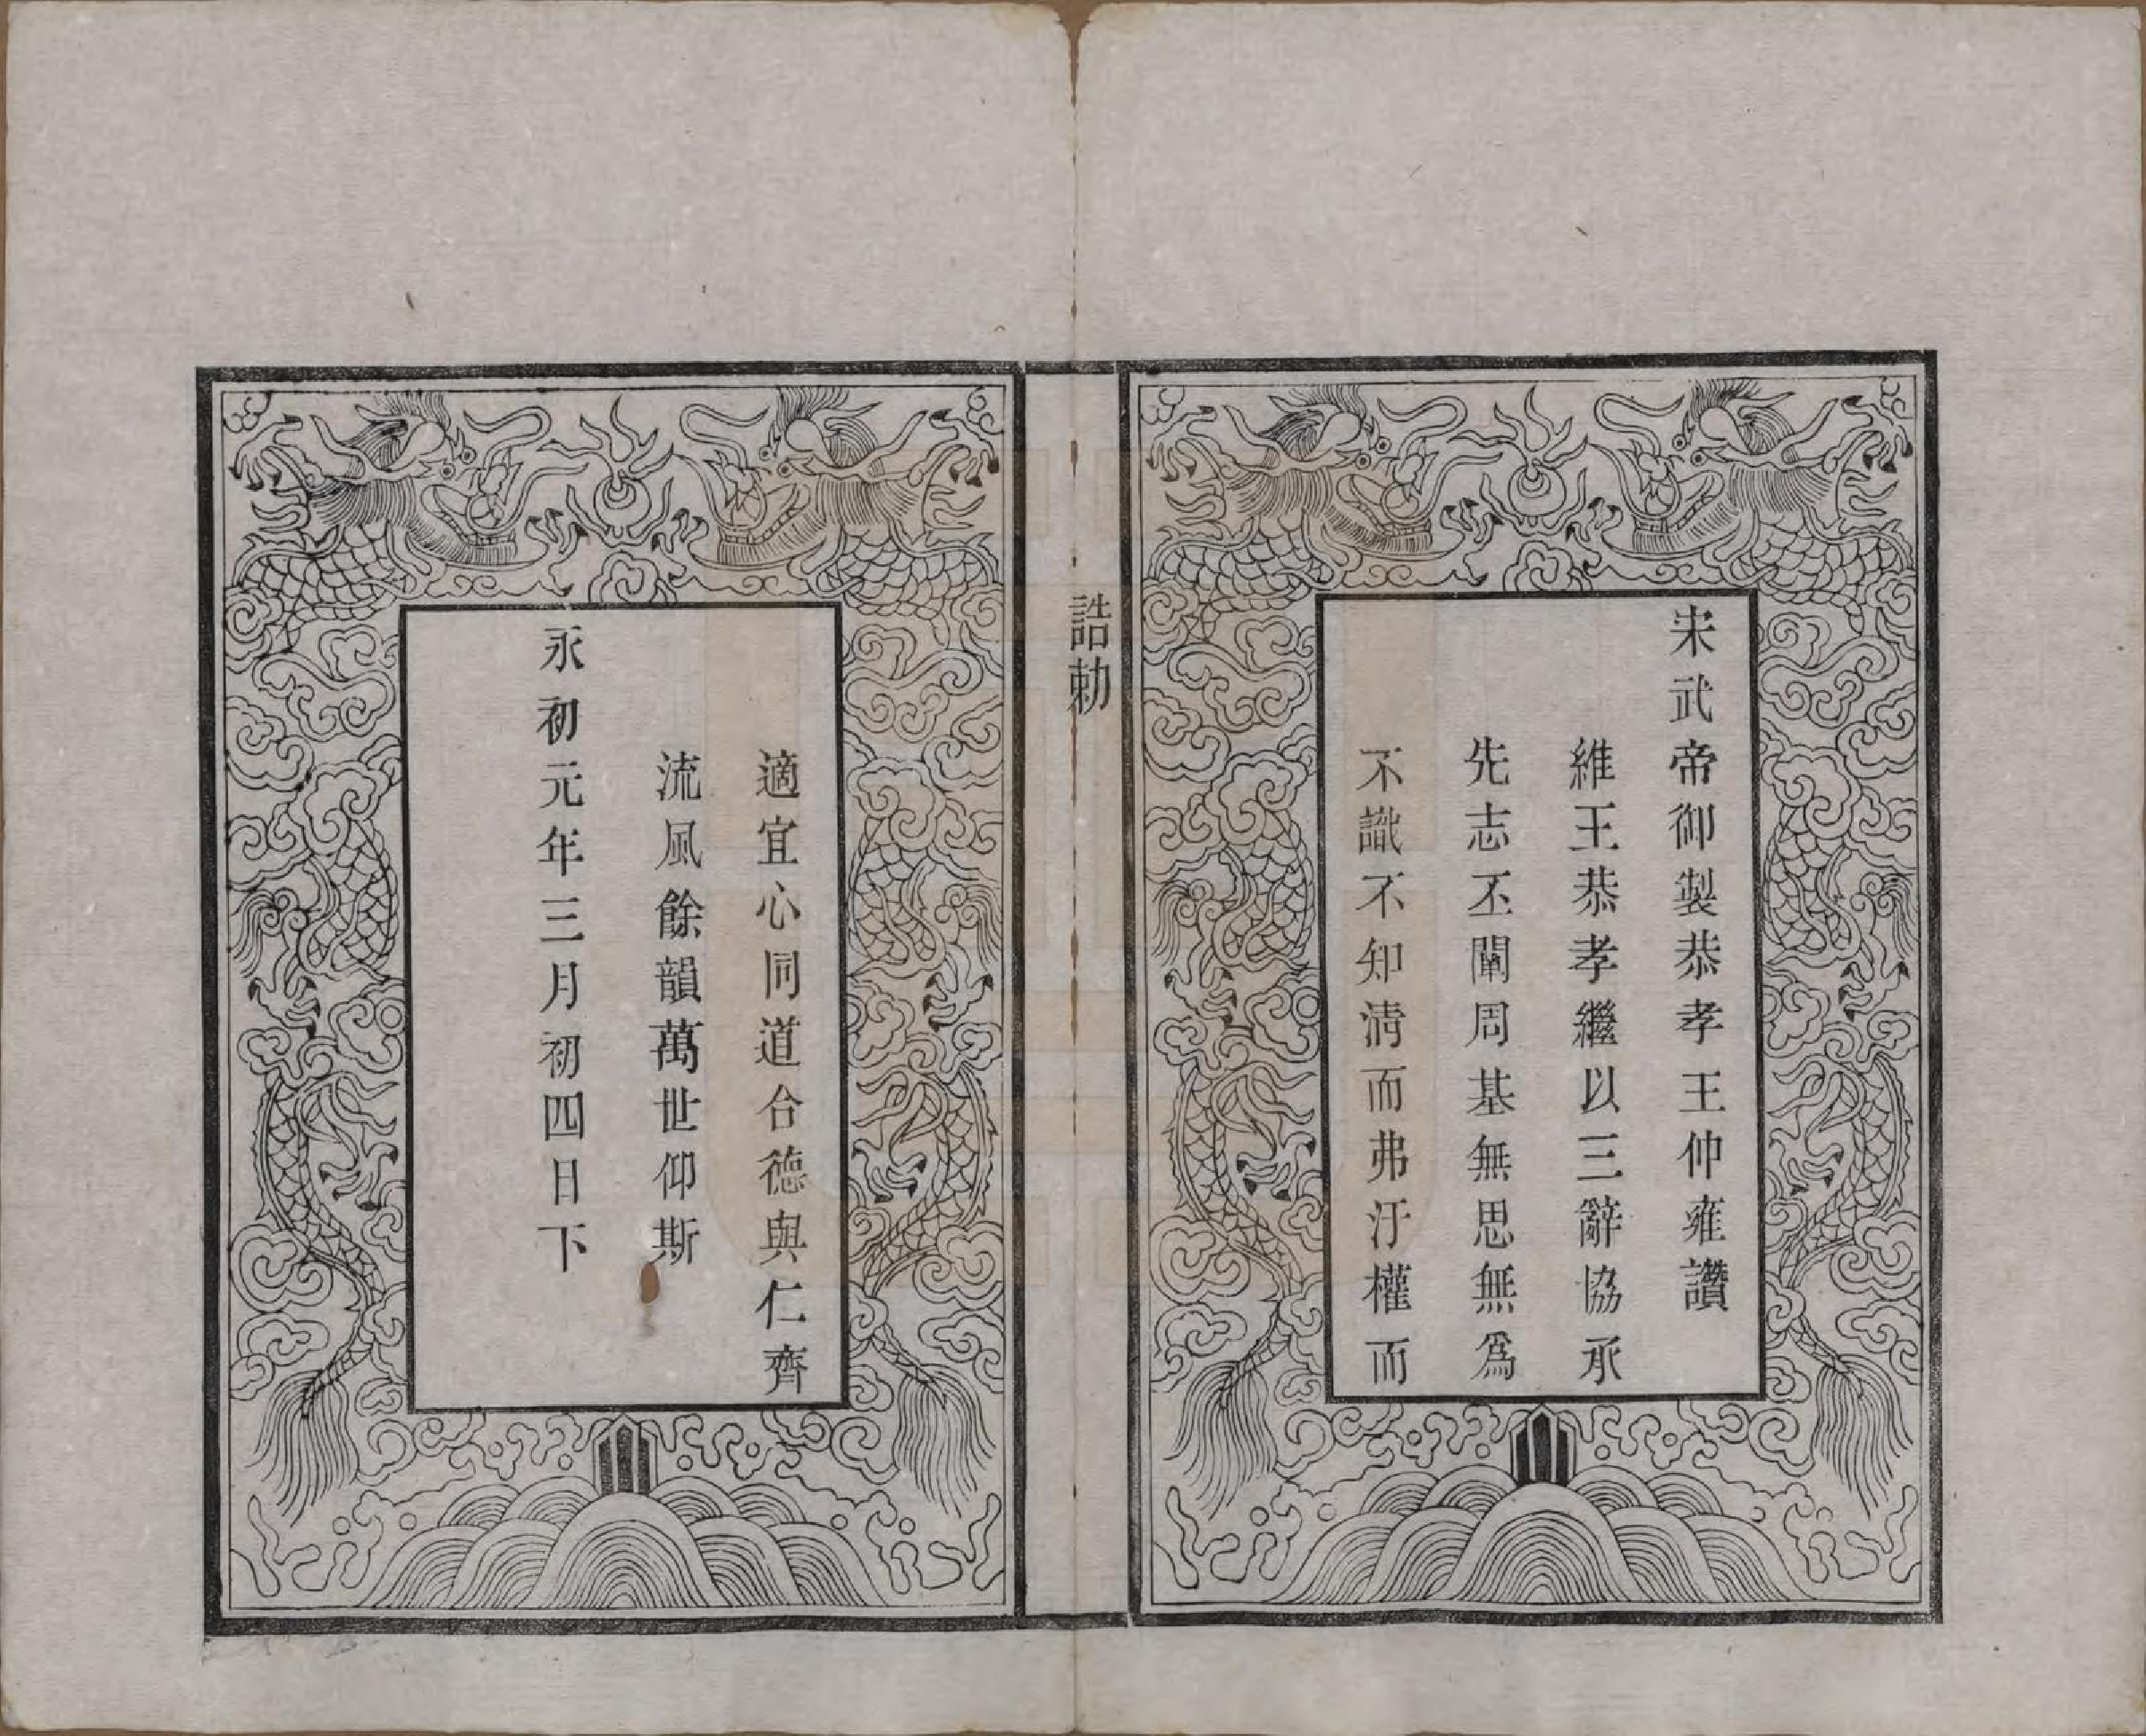 宋武帝御製恭孝王仲雍讚
維王恭孝繼以三辭協承
先志丕闡周基無思無爲
不識不知清而弗汙權而
誥勅
適宜心同道合德與仁齊
流風餘韻萬世仰斯
永初元年三月初四日下